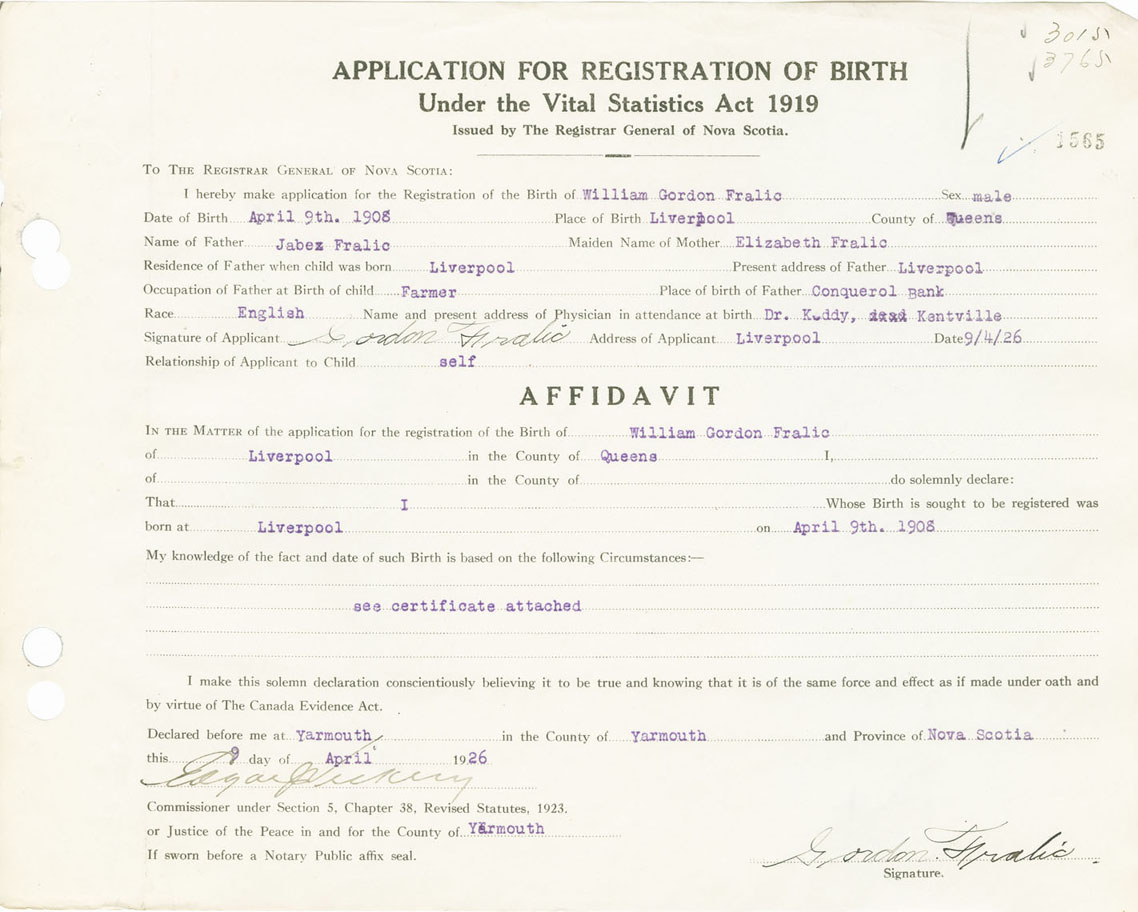 3015
3765
APPLICATION FOR REGISTRATION OF BIRTH
Under the Vital Statistics Act 1919
Issued by The Registrar General of Nova Scotia.
1565
TO THE REGISTRAR GENERAL OF NOVA SCOTIA:
I hereby make application for the Registration of the Birth of William Gordon Fralic Sex male
Date of Birth April 9th. 1908 Place of Birth Liverpool County of Queens
Name of Father Jabez Fralic Maiden Name of Mother Elizabeth Fralic
Residence of Father when child was born Liverpool Present address of Father Liverpool
Occupation of Father at Birth of child Farmer Place of birth of Father Conquerol Bank
Race English Name and present address of Physician in attendance at birth Dr. Kuddy, Kentville
Signature of Applicant Gordon Fralic Address of Applicant Liverpool Date 9/4/26
Relationship of Applicant to Child self
AFFIDAVIT
IN THE MATTER of the application for the registration of the Birth of William Gordon Fralic
of Liverpool in the County of Queens I,
of in the County of do solemnly declare:
That I Whose Birth is sought to be registered was
born at Liverpool on April 9th. 1908
My knowledge of the fact and date of such Birth is based on the following Circumstances:—
see certificate attached
I make this solemn declaration conscientiously believing it to be true and knowing that it is of the same force and effect as if made under oath and
by virtue of The Canada Evidence Act.
Declared before me at Yarmouth in the County of Yarmouth and Province of Nova Scotia
this 9 day of April 1926
Edgar
Commissioner under Section 5, Chapter 38, Revised Statutes, 1923.
or Justice of the Peace in and for the County of Yarmouth
If sworn before a Notary Public affix seal.
Gordon Fralic.
Signature.